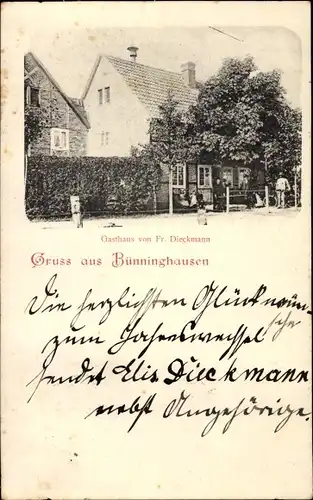 Gasthaus von Fr. Dieckmann
Gruss aus Bünninghausen
Die herzlichsten Glückwün-
sche
zum Jahreswechsel
sendet Elis Dieckmann
nebst Angehörige.